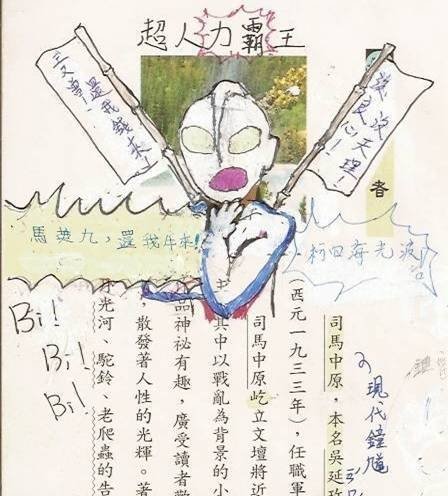 超人力霸王
還我錢來！
天理！
者
馬英九，還我牛來！
Bi!
Bi!
Bi!
現代鍾馗
司馬中原，本名吳延玫
（西元一九三三年），任職軍
司馬中原屹立文壇將近
其中以戰亂為背景的小
品神祕有趣，廣受讀者
散發著人性的光輝。著
光河、駝鈴、老爬蟲的告